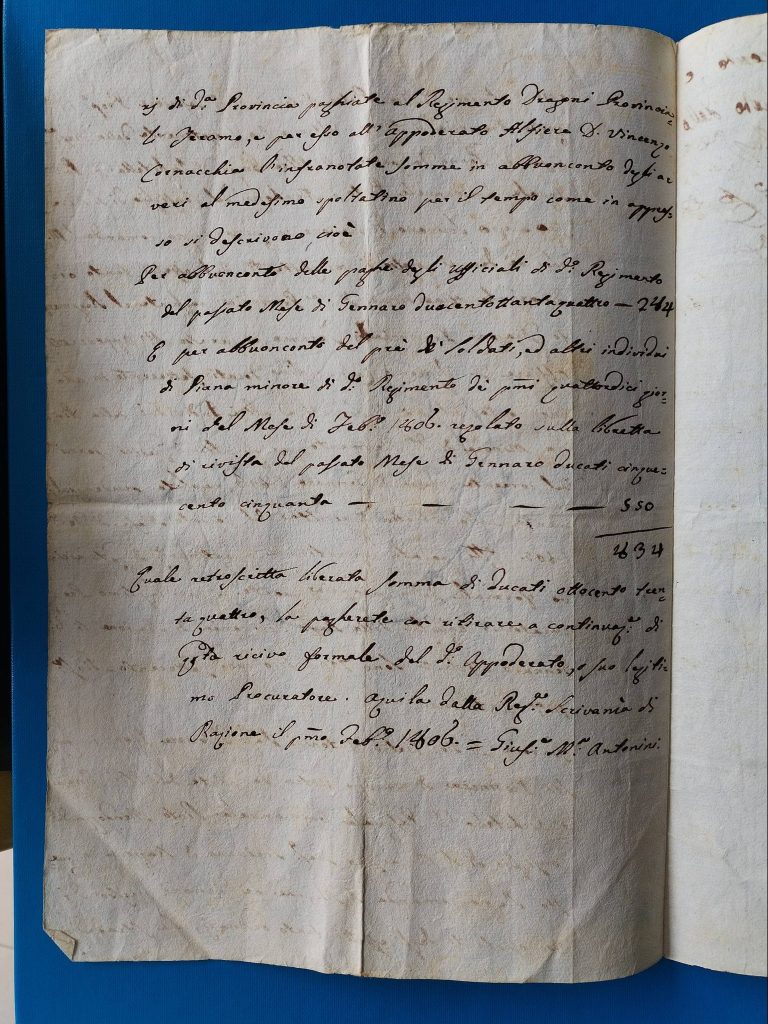 rj di d.ª Provincia paghiate al Regimento Dragoni Provincia=
li Teramo, e per esso all' Appoderato Alfiere D. Vincenzo
Cornacchia l'infranotate somme in abbuonconto degli a=
veri al medesimo spettatino per il tempo come in appres=
so si descrivono, cioè
Per abbuonconto delle paghe degli Ufficiali di d.º Regimento
del passato Mese di Gennaro duecentottantaquattro — 284
E per abbuonconto del prè de' Soldati, ed altri individui
di Piana minore di d.º Regimento de' pmi quattordici gior=
ni del Mese di Feb.º 1806. regolato sulla libretta
di rivista del passato Mese di Gennaro ducati cinque=
cento cinquanta — — — — 550
834
Quale retroscritta liberata somma di ducati ottocento tren=
ta quattro, la pagherete con ritirare a continuaz.e di
qsta ricivo formale del d.º Appoderato, o suo legiti=
mo Procuratore. Aquila dalla Reg.ª Scrivania di
Razione il pmo Feb.º 1806. = Gius.e M.ª Antonini.